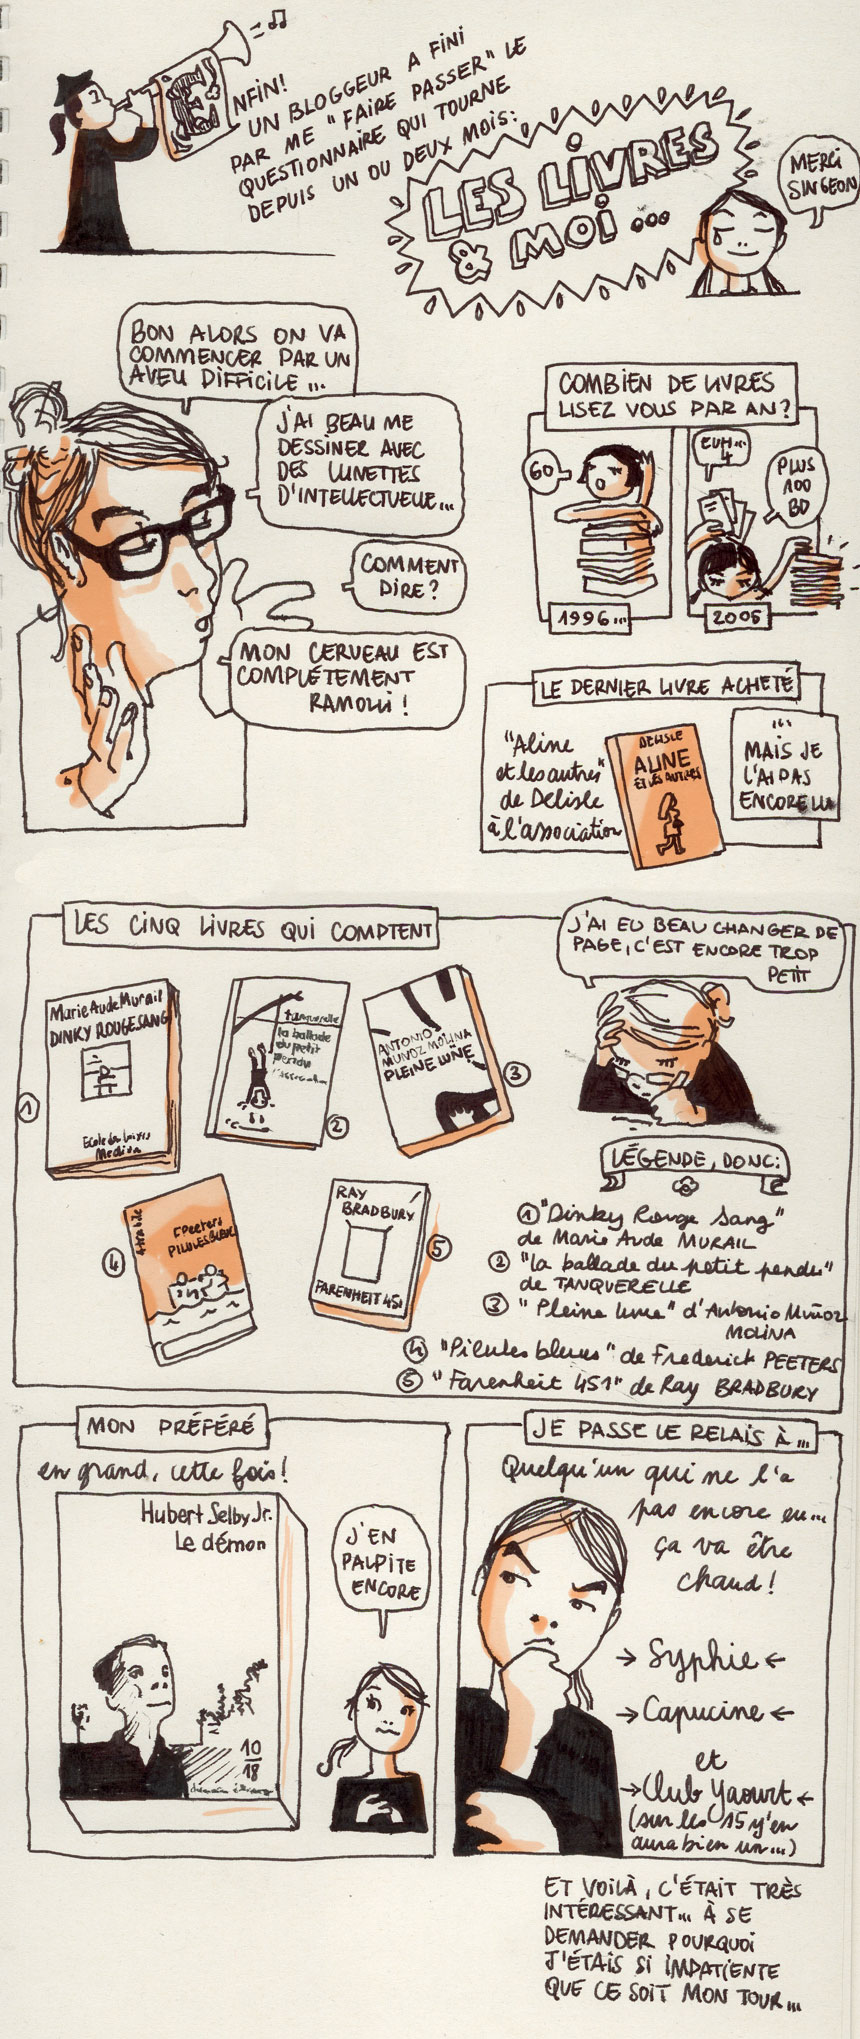 ENFIN!
UN BLOGGEUR A FINI
PAR ME "FAIRE PASSER" LE
QUESTIONNAIRE QUI TOURNE
DEPUIS UN OU DEUX MOIS:
LES LIVRES
& MOI...
MERCI
SINGEON
BON ALORS ON VA
COMMENCER PAR UN
AVEU DIFFICILE...
J'AI BEAU ME
DESSINER AVEC
DES LUNETTES
D'INTELLECTUELLE...
COMMENT
DIRE?
MON CERVEAU EST
COMPLÉTEMENT
RAMOLLI!
COMBIEN DE LIVRES
LISEZ VOUS PAR AN?
60
1996...
EUH...
4
PLUS
100
BD
2005
LE DERNIER LIVRE ACHETÉ
"Aline
et les autres"
de Delisle
à l'association
DELISLE
ALINE
ET LES AUTRES
...
MAIS JE
L'AI PAS
ENCORE LU
LES CINQ LIVRES QUI COMPTENT
J'AI EU BEAU CHANGER DE
PAGE, C'EST ENCORE TROP
PETIT
Marie Aude Murail
DINKY ROUGE SANG
Ecole des loisirs
Medium
1
tanquerelle
la ballade
du petit
pendu
l'association
2
ANTONIO
MUNOZ MOLINA
PLEINE LUNE
3
atrabile
F Peeters
PILULES BLEUES
4
RAY
BRADBURY
FARENHEIT 451
5
LÉGENDE, DONC:
1 "Dinky Rouge Sang"
de Marie Aude MURAIL
2 "la ballade du petit pendu"
de TANQUERELLE
3 "Pleine lune" d'Antonio Muñoz
MOLINA
4 "Pilules bleues" de Frederick PEETERS
5 "Farenheit 451" de Ray BRADBURY
MON PRÉFÉRÉ
en grand, cette fois!
Hubert Selby Jr.
Le démon
10
18
J'EN
PALPITE
ENCORE
JE PASSE LE RELAIS À...
Quelqu'un qui ne l'a
pas encore eu...
ça va être
chaud!
→ Syphie ←
→ Capucine ←
et
→ Club Yaourt ←
(sur les 15 y'en
aura bien un...)
ET VOILÀ, C'ÉTAIT TRÈS
INTÉRESSANT... À SE
DEMANDER POURQUOI
J'ÉTAIS SI IMPATIENTE
QUE CE SOIT MON TOUR...